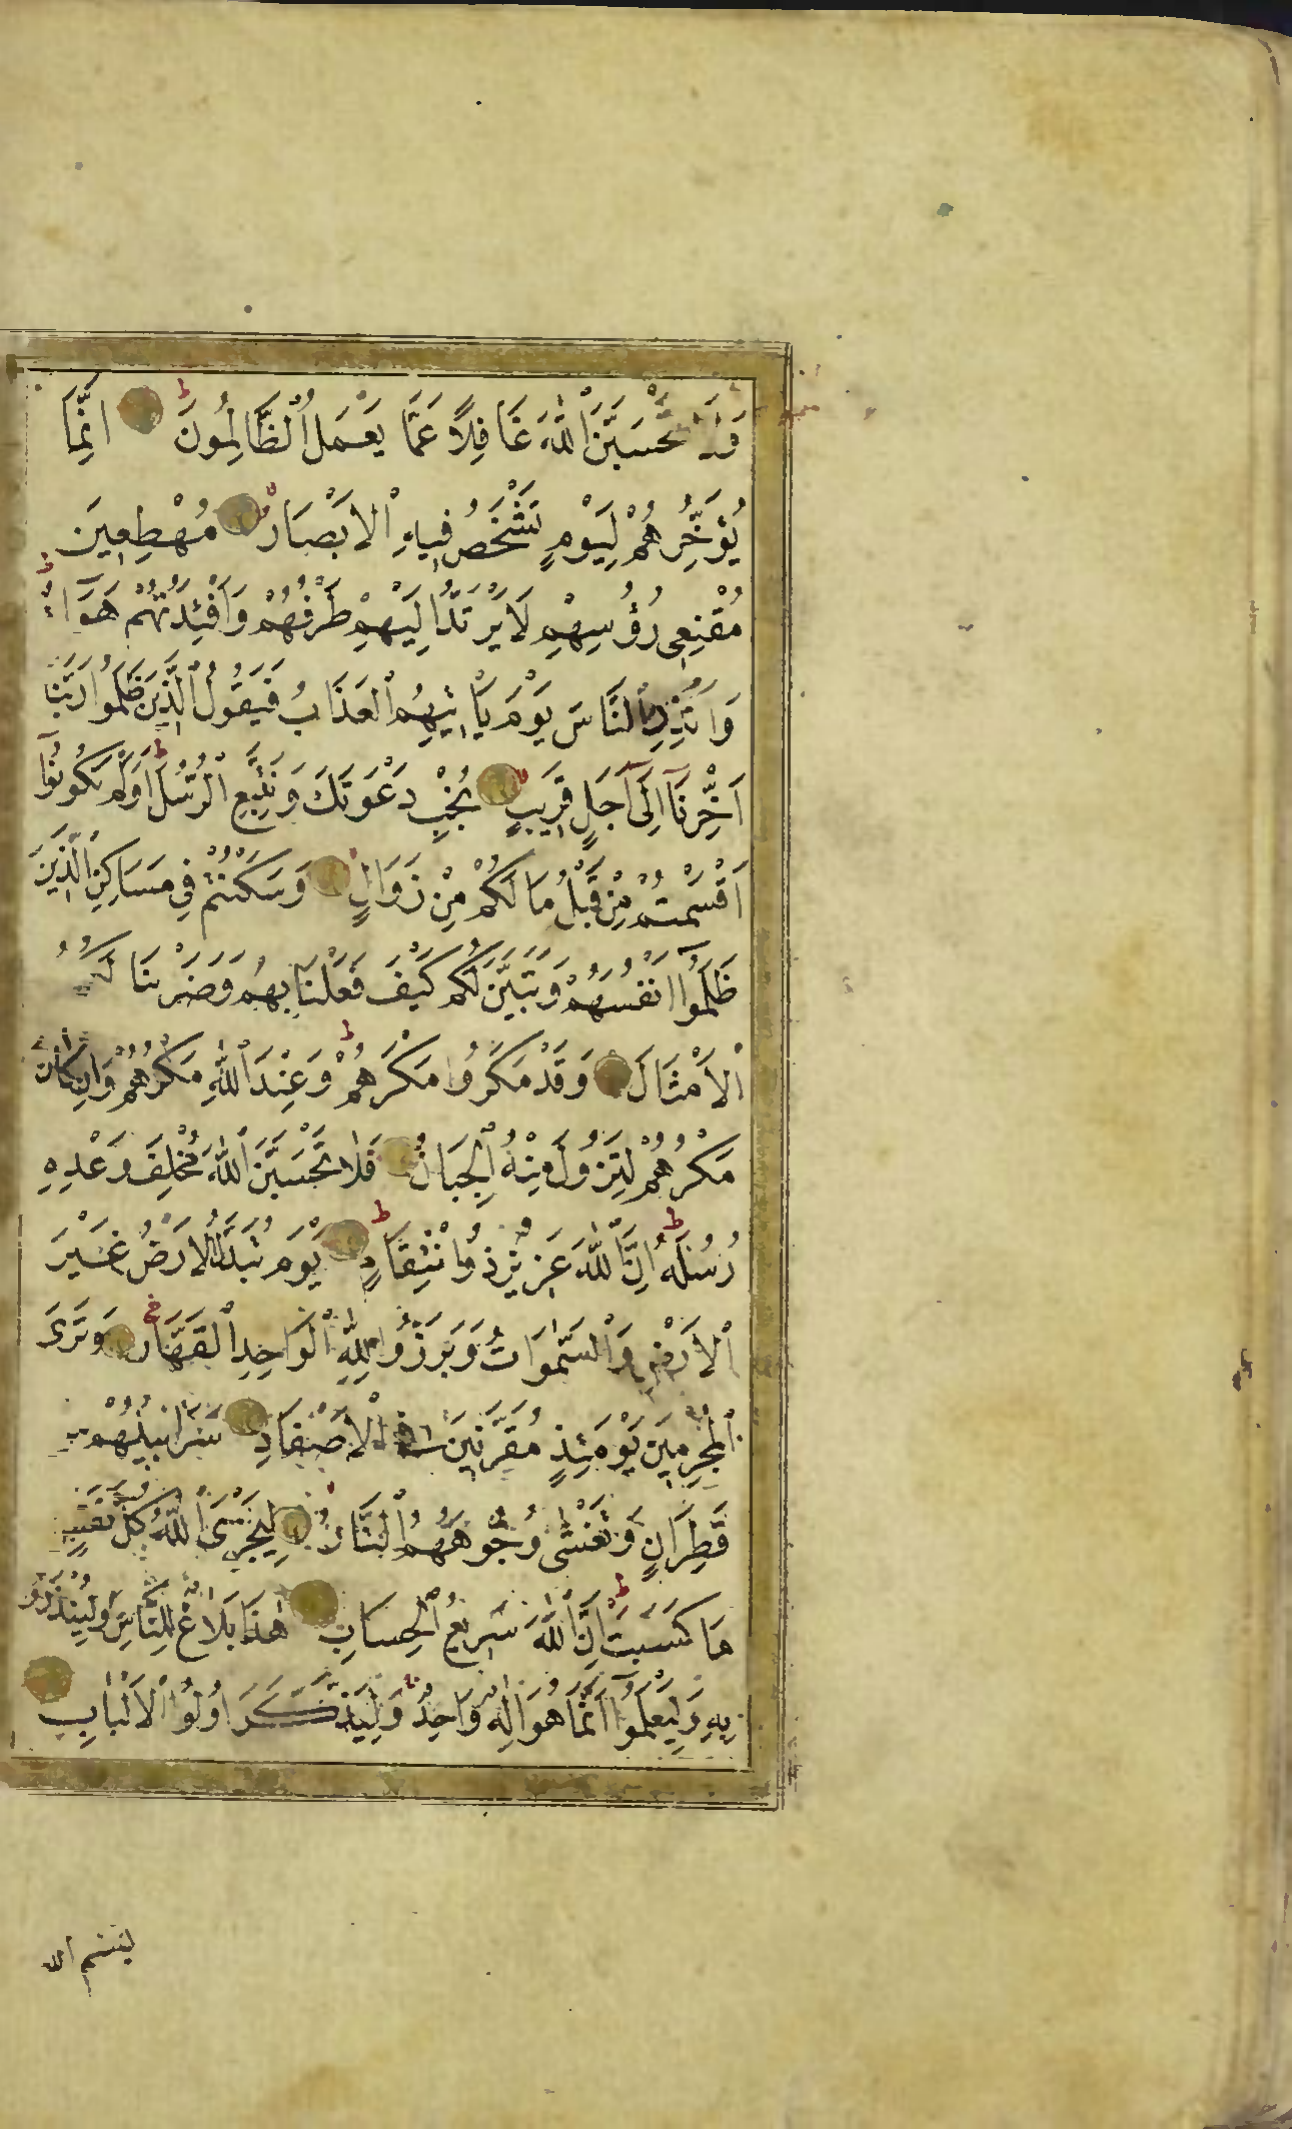 وَلَا تَحْسَبَنَّ اللّٰهَ غَافِلًا عَمَّا يَعْمَلُ الظَّالِمُونَ ط اِنَّمَا
يُؤَخِّرُهُمْ لِيَوْمٍ تَشْخَصُ فِيهِ الْاَبْصَارُ مُهْطِعِينَ
مُقْنِعِى رُؤُسِهِمْ لَا يَرْتَدُّ اِلَيْهِمْ طَرْفُهُمْ وَاَفْئِدَتُهُمْ هَوَاءٌ ط
وَاَنْذِرِ النَّاسَ يَوْمَ يَأْتِيهِمُ الْعَذَابُ فَيَقُولُ الَّذِينَ ظَلَمُوا رَبَّنَا
اَخِّرْنَآ اِلٰٓى اَجَلٍ قَرِيبٍ نُجِبْ دَعْوَتَكَ وَنَتَّبِعِ الرُّسُلَ ط اَوَلَمْ تَكُونُوٓا
اَقْسَمْتُمْ مِنْ قَبْلُ مَا لَكُمْ مِنْ زَوَالٍ وَسَكَنْتُمْ فِى مَسَاكِنِ الَّذِينَ
ظَلَمُوٓا اَنْفُسَهُمْ وَتَبَيَّنَ لَكُمْ كَيْفَ فَعَلْنَا بِهِمْ وَضَرَبْنَا لَكُمُ
الْاَمْثَالَ وَقَدْ مَكَرُوا مَكْرَهُمْ ط وَعِنْدَ اللّٰهِ مَكْرُهُمْ وَاِنْ كَانَ
مَكْرُهُمْ لِتَزُولَ مِنْهُ الْجِبَالُ فَلَا تَحْسَبَنَّ اللّٰهَ مُخْلِفَ وَعْدِهِ
رُسُلَهُ ط اِنَّ اللّٰهَ عَزِيزٌ ذُو انْتِقَامٍ ط يَوْمَ تُبَدَّلُ الْاَرْضُ غَيْرَ
الْاَرْضِ وَالسَّمٰوَاتُ وَبَرَزُوا لِلّٰهِ الْوَاحِدِ الْقَهَّارِ وَتَرَى
الْمُجْرِمِينَ يَوْمَئِذٍ مُقَرَّنِينَ فِى الْاَصْفَادِ سَرَابِيلُهُمْ مِنْ
قَطِرَانٍ وَتَغْشٰى وُجُوهَهُمُ النَّارُ لِيَجْزِىَ اللّٰهُ كُلَّ نَفْسٍ
مَا كَسَبَتْ ط اِنَّ اللّٰهَ سَرِيعُ الْحِسَابِ هٰذَا بَلَاغٌ لِلنَّاسِ وَلِيُنْذَرُوا
بِهِ وَلِيَعْلَمُوٓا اَنَّمَا هُوَ اِلٰهٌ وَاحِدٌ وَلِيَذَّكَّرَ اُولُوا الْاَلْبَابِ
بسم الله